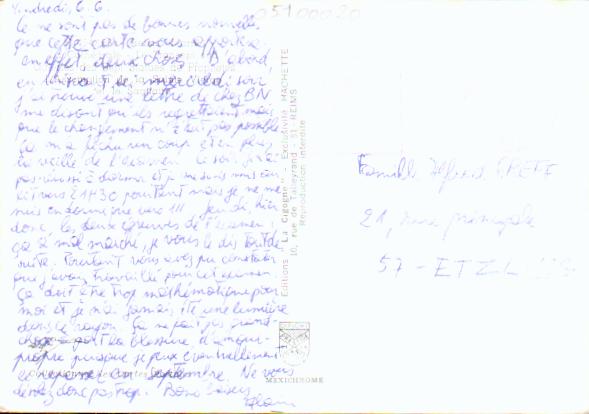 Vendredi, 6. 6.
05100020
Ce ne sont pas de bonnes nouvelles
que cette carte vous apportera
en effet, deux choses. D'abord,
en mercredi soir
j'ai trouvé une lettre de chez BN
me disant qu'ils regrettaient mais
que le changement n'était pas possible
Ça m'a fichu un coup et en plus
la veille de l'examen. Ce soir, j'ai
pas réussi à dormir et je me suis mis au
lit vers 21H30 pourtant mais je ne me
suis endormi que vers 1H. Jeudi, hier
donc, les deux épreuves de l'examen,
ça a mal marché, je vous le dis tout de
suite. Pourtant vous avez pu constater
que j'avais travaillé pour cet examen.
Ça doit être trop mathématique pour
moi et je n'ai jamais été une lumière
dans ce rayon. Ça ne fait pas grand-
chose la blessure d'amour-
propre puisque je peux éventuellement
en septembre. Ne vous
donc pas trop. Bons baisers
Alain
Editions " La Cigogne " - Exclusivité HACHETTE
10, rue de Talleyrand - 51 - REIMS
Reproduction interdite
MEXICHROME
Famille Alfred
21, rue principale
57 - ETZLING